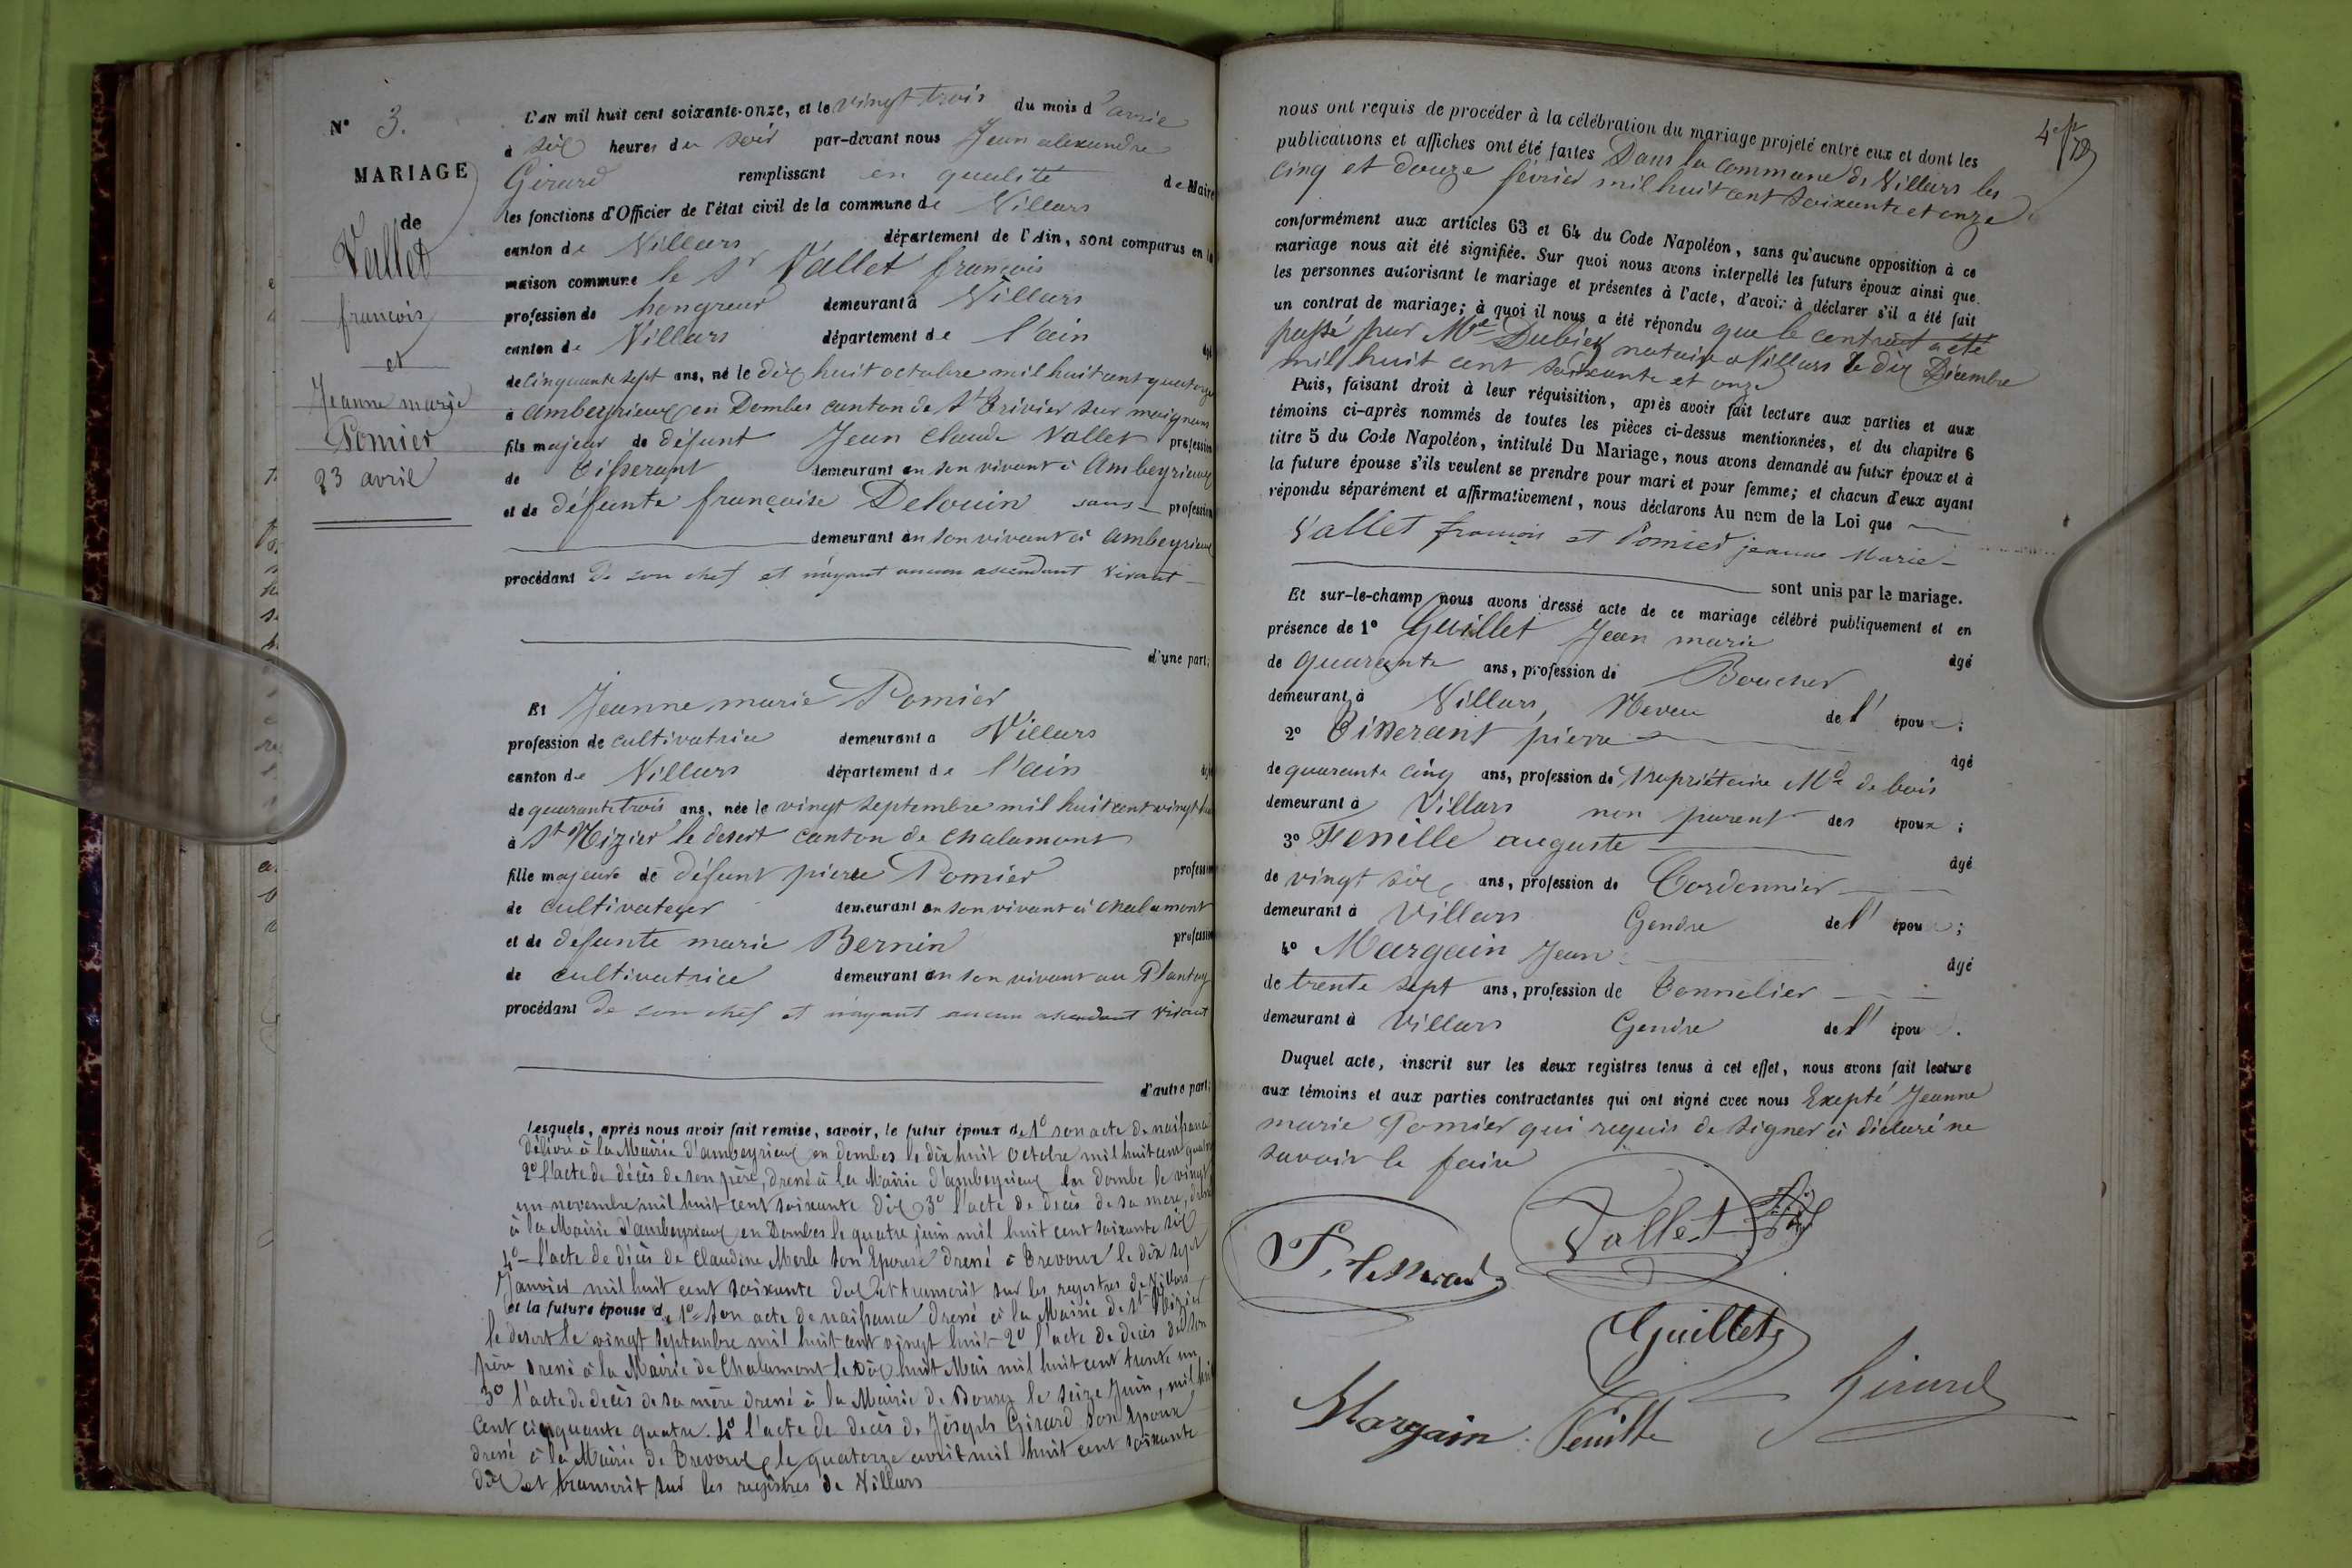 N° 3.
MARIAGE
de
Vallet
françois
et
Jeanne marie
Pomier
23 avril
L'AN mil huit cent soixante-onze, et le vingt trois du mois d'avril
à six heures du soir par-devant nous Jean alexandre
Girard remplissant en qualité de Maire
les fonctions d'Officier de l'état civil de la commune de Villars
canton de Villars département de l'Ain, sont comparus en la
maison commune le Sr Vallet françois
profession de hongreur demeurant à Villars
canton de Villars département de l'ain âgé
de cinquante sept ans, né le dix huit octobre mil huit cent quatorze
à ambeyrieux en Dombes canton de St Trivier sur moignans
fils majeur de défunt Jean Claude Vallet profession
de Tisserant demeurant en son vivant à Ambeyrieux
et de défunte françoise Delouin sans profession
demeurant en son vivant à ambeyrieux
procédant de son chef et n'ayant aucun ascendant vivant
d'une part;
Et Jeanne marie Pomier
profession de cultivatrice demeurant à Villars
canton de Villars département de l'ain âgé
de quarante trois ans, née le vingt septembre mil huit cent vingt huit
à St Nizier le desert canton de chalamont
fille majeure de défunt pierre Pomier profession
de cultivateur demeurant en son vivant à chalamont
et de defunte marie Bernin profession
de cultivatrice demeurant en son vivant au Plantay
procédant de son chef et n'ayant aucun ascendant vivant
d'autre part;
lesquels, après nous avoir fait remise, savoir, le futur époux de 1° son acte de naissance
délivré à la Mairie d'ambeyrieux en dombes le dix huit octobre mil huit cent quatorze
2° l'acte de décès de son père, dressé à la Mairie d'ambeyrieux en dombe le vingt
un novembre mil huit cent soixante dix 3° l'acte de decès de sa mere, dressé
à la Mairie d'ambeyrieux en Dombes le quatre juin mil huit cent soixante six
4° l'acte de décès de Claudine Merle son Epouse dressé à Trevoux le dix sept
Janvier mil huit cent soixante dix et transcrit sur les registres de Villars
et la future épouse de 1° son acte de naissance dressé à la Mairie de St Nizier
le desert le vingt septembre mil huit cent vingt huit 2° l'acte de decès de son
père dressé à la Mairie de Chalamont le dix huit Mai mil huit cent trente un
3° l'acte de decès de sa mère dressé à la Mairie de Bourg le seize Juin, mil huit
cent cinquante quatre. 4° l'acte de decès de Joseph Girard son Epoux
dressé à la Mairie de Trevoux le quatorze avril mil huit cent soixante
dix et transcrit sur les registres de Villars
nous ont requis de procéder à la célébration du mariage projeté entre eux et dont les
publications et affiches ont été faites Dans la commune de Villars les
cinq et douze février mil huit cent soixante et onze
conformément aux articles 63 et 64 du Code Napoléon, sans qu'aucune opposition à ce
mariage nous ait été signifiée. Sur quoi nous avons interpellé les futurs époux ainsi que
les personnes autorisant le mariage et présentes à l'acte, d'avoir à déclarer s'il a été fait
un contrat de mariage; à quoi il nous a été répondu que le contrat a été
passé par Me Dubiez notaire a Villars le dix Décembre
mil huit cent soixante et onze
Puis, faisant droit à leur réquisition, après avoir fait lecture aux parties et aux
témoins ci-après nommés de toutes les pièces ci-dessus mentionnées, et du chapitre 6
titre 5 du Code Napoléon, intitulé Du Mariage, nous avons demandé au futur époux et à
la future épouse s'ils veulent se prendre pour mari et pour femme; et chacun d'eux ayant
répondu séparément et affirmativement, nous déclarons Au nom de la Loi que
Vallet françois et Pomier jeanne Marie
sont unis par le mariage.
Et sur-le-champ nous avons dressé acte de ce mariage célébré publiquement et en
présence de 1° Guillet Jean marie âgé
de quarante ans, profession de Boucher
demeurant à Villars, Neveu de l'époux;
2° Tisserant pierre âgé
de quarante cinq ans, profession de Propriétaire Md de bois
demeurant à Villars non parent des époux;
3° Feuille auguste âgé
de vingt six ans, profession de Cordonnier
demeurant à Villars Gendre de l'épou ;
4° Margain Jean âgé
de trente sept ans, profession de Tonnelier
demeurant à Villars Gendre de l'épou .
Duquel acte, inscrit sur les deux registres tenus à cet effet, nous avons fait lecture
aux témoins et aux parties contractantes qui ont signé avec nous Exepté Jeanne
marie Pomier qui requis de signer à déclaré ne
savoir le faire
Vallet
Guillet
Margain Feuille Girard